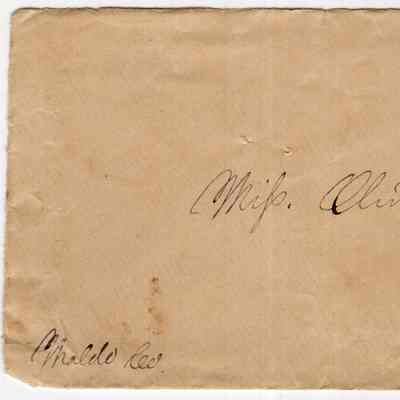 Miſs. Oli
Waldo Co.